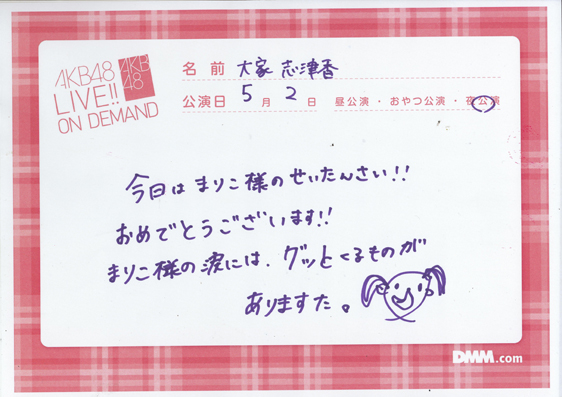 AKB48
LIVE!!
ON DEMAND
AKB
48
名 前 大家 志津香
公演日 5 月 2 日 昼公演・おやつ公演・夜公演
今日は まりこ様のせいたんさい!!
おめでとうございます!!
まりこ様の涙には、グッとくるものが
ありますた。
DMM.com